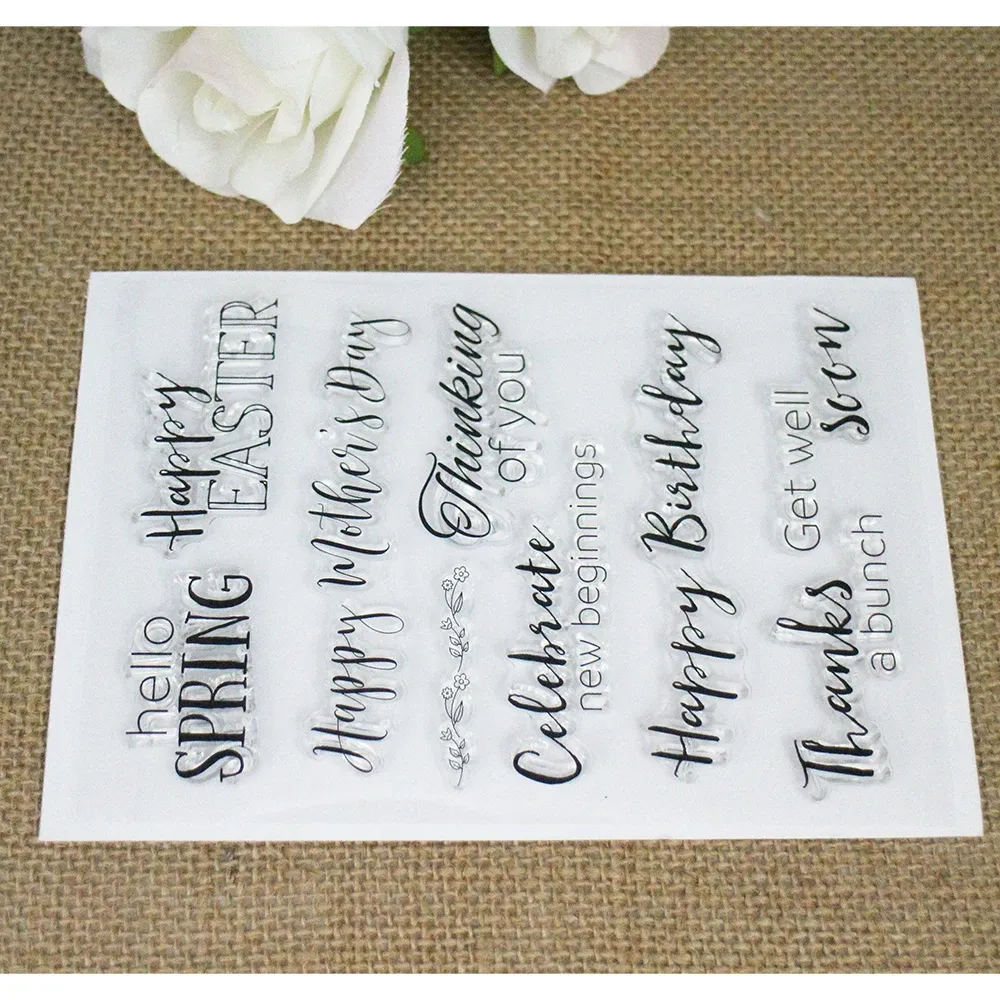 hello
SPRING
Happy
EASTER
Happy Mother's Day
Thinking
of you
Celebrate
new beginnings
Happy Birthday
Thanks
a bunch
Get well
soon